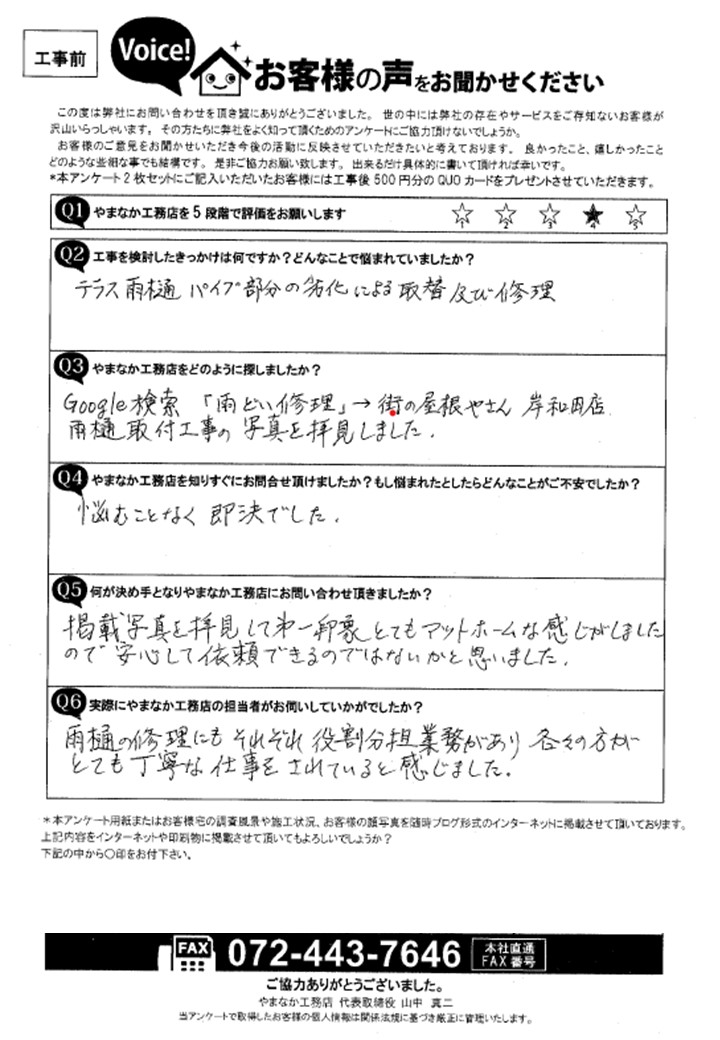 工事前
Voice!
お客様の声をお聞かせください
この度は弊社にお問い合わせを頂き誠にありがとうございました。世の中には弊社の存在やサービスをご存知ないお客様が
沢山いらっしゃいます。その方たちに弊社をよく知って頂くためのアンケートにご協力頂けないでしょうか。
お客様のご意見をお聞かせいただき今後の活動に反映させていただきたいと考えております。良かったこと、嬉しかったこと
どのような些細な事でも結構です。是非ご協力お願い致します。出来るだけ具体的に書いて頂ければ幸いです。
*本アンケート2枚セットにご記入いただいたお客様には工事後500円分のQUOカードをプレゼントさせていただきます。
Q1 やまなか工務店を5段階で評価をお願いします ☆1 ☆2 ☆3 ★4 ☆5
Q2 工事を検討したきっかけは何ですか?どんなことで悩まれていましたか?
テラス雨樋 パイプ部分の劣化による取替及び修理
Q3 やまなか工務店をどのように探しましたか?
Google検索「雨どい修理」→街の屋根やさん 岸和田店
雨樋取付工事の写真を拝見しました.
Q4 やまなか工務店を知りすぐにお問合せ頂けましたか?もし悩まれたとしたらどんなことがご不安でしたか?
悩むことなく即決でした.
Q5 何が決め手となりやまなか工務店にお問い合わせ頂きましたか?
掲載写真を拝見して第一印象とてもアットホームな感じがしました
ので安心して依頼できるのではないかと思いました.
Q6 実際にやまなか工務店の担当者がお伺いしていかがでしたか?
雨樋の修理にもそれぞれ役割分担業務があり各々の方が
とても丁寧な仕事をされていると感じました.
*本アンケート用紙またはお客様宅の調査風景や施工状況、お客様の顔写真を随時ブログ形式のインターネットに掲載させて頂いております。
上記内容をインターネットや印刷物に掲載させて頂いてもよろしいでしょうか?
下記の中から〇印をお付下さい。
FAX 072-443-7646 本社直通
FAX番号
ご協力ありがとうございました。
やまなか工務店 代表取締役 山中 真二
当アンケートで取得したお客様の個人情報は関係法規に基づき厳正に管理いたします。